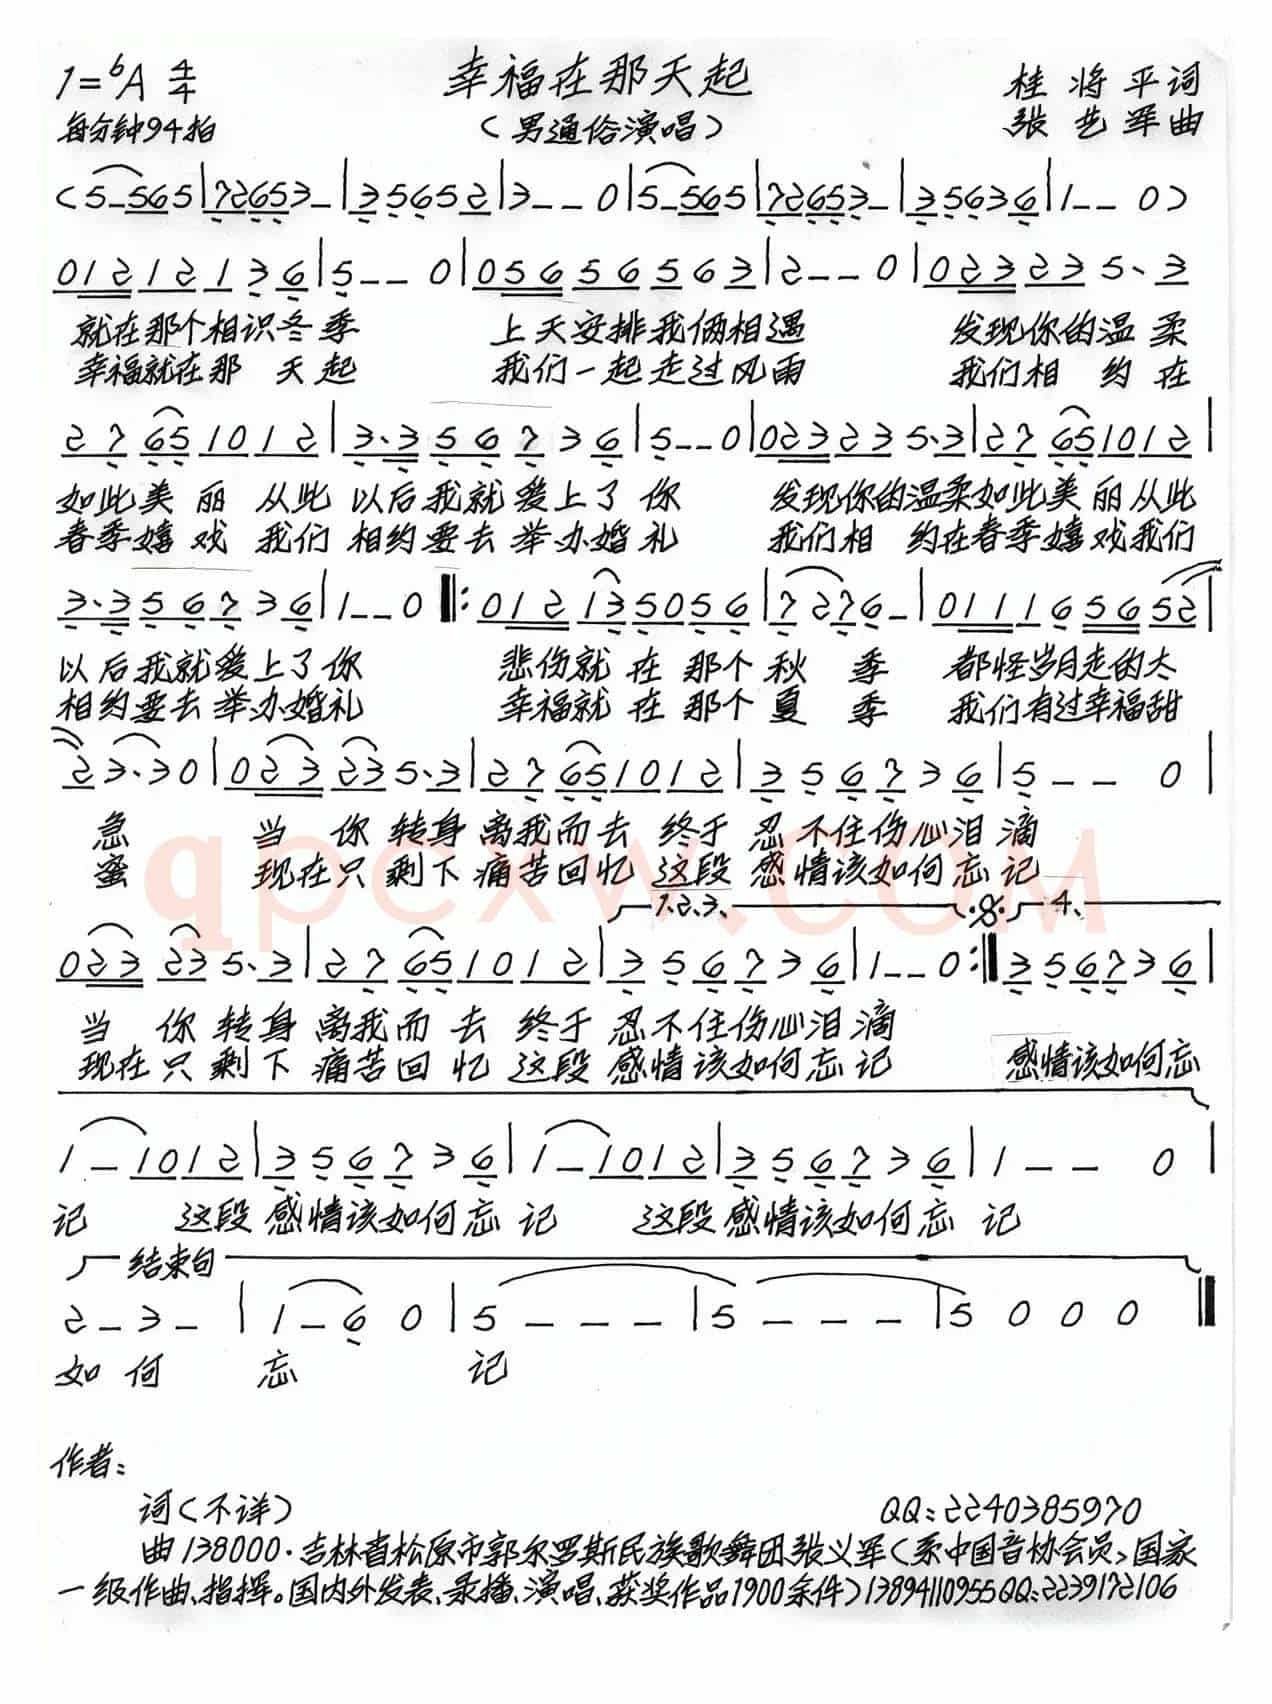 1=♭A 4/4 幸福在那天起 桂将平词
每分钟94拍 （男通俗演唱） 张艺军曲
(5-565|72653-|35652|3--0|5-565|72653-|35636|1--0)
01212136|5--0|05656563|2--0|023235.3
就在那个相识冬季 上天安排我俩相遇 发现你的温柔
幸福就在那天起 我们一起走过风雨 我们相约在
27651012|3.356736|5--0|023235.3|27651012|
如此美丽从此以后我就爱上了你 发现你的温柔如此美丽从此
春季嬉戏我们相约要去举办婚礼 我们相约在春季嬉戏我们
3.356736|1--0‖:012135056|7276-|011165652|
以后我就爱上了你 悲伤就在那个秋季 都怪岁月走的太
相约要去举办婚礼 幸福就在那个夏季 我们有过幸福甜
23.30|023235.3|27651012|356736|5--0|
急 当你转身离我而去终于忍不住伤心泪滴
蜜 现在只剩下痛苦回忆这段感情该如何忘记
1.2.3. 4.
023235.3|27651012|356736|1--0:‖356736|
当你转身离我而去终于忍不住伤心泪滴
现在只剩下痛苦回忆这段感情该如何忘记 感情该如何忘
1-1012|356736|1-1012|356736|1--0|
记 这段感情该如何忘记 这段感情该如何忘记
结束句
2-3-|1-60|5---|5---|5000‖
如何忘记
作者：
词（不详） QQ：2240385970
曲138000.吉林省松原市郭尔罗斯民族歌舞团张义军（系中国音协会员，国家
一级作曲、指挥。国内外发表、录播、演唱、获奖作品1900余件）13894110955QQ：2239172106
qpcxw.COM